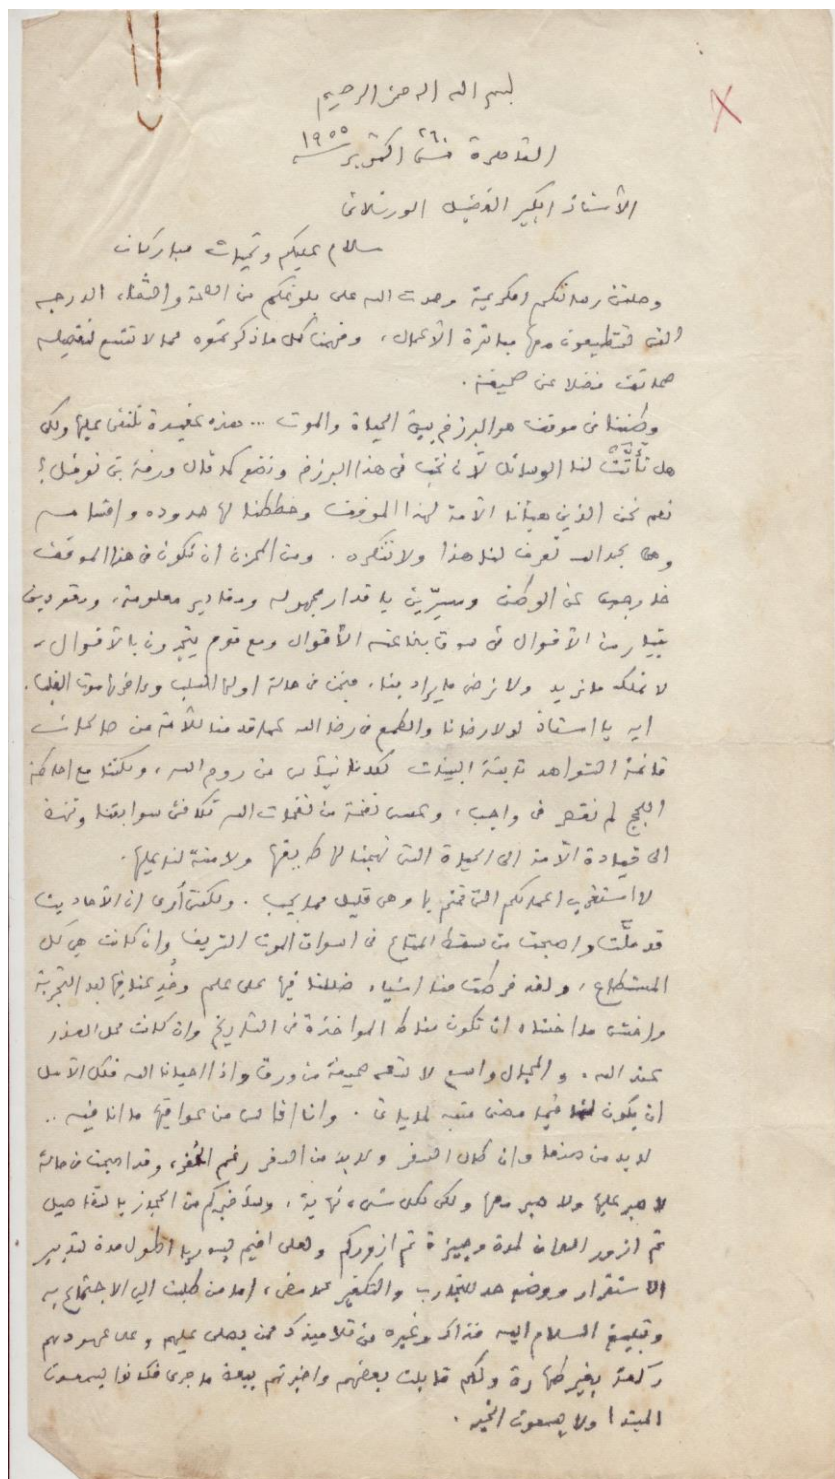 بسم الله الرحمن الرحيم
القاهرة في ٢٦ اكتوبر سنة ١٩٥٥
الأستاذ الكبير الفضيل الورتلاني
سلام عليكم وتحيات مباركات
وصلتني رسالتكم الكريمة وحمدت الله على بلوغكم من الصحة والشفاء الدرجة
التي تستطيعون معها مباشرة الأعمال، وفهمت كل ما ذكرتموه مما لا تتسع لتفصيله
صحائف فضلا عن صحيفة.
وظننا في موقف هو البرزخ بين الحياة والموت ... هذه عقيدة نلتقي عليها ولكن
هل تأتّت لنا الوسائل لأن نخب في هذا البرزخ ونضع كما قال ورقة بن نوفل؟
نعم نحن الذين هيأنا الأمة لهذا الموقف وخططنا لها حدوده واقتسامه
وهي بحمد الله تعرف لنا هذا ولا تنكره. ومن المحزن ان نكون في هذا الموقف
خارجين عن الوطن ومسيّرين باقدار مجهولة ومقادير معلومة، ومقودين
بتيار من الأقوال في سوق بضاعته الأقوال ومع قوم يتجرون بالأقوال،
لا نملك ما نريد ولا نرضى ما يراد بنا، فنحن في حالة اولها السلب وآخرها موت القلب.
ايه يا استاذ لولا رضانا والطمع في رضا الله عما قدمنا للأمة من صالحات
قائمة الشواهد ثابتة البينات لكدنا نيأس من روح الله، ولكننا مع احلاك
اللجج لم نقصر في واجب، وعسى نفحة من نفحات الله تكافئ سوابقنا وتهيئ
الى قيادة الأمة الى الحياة التي نهجنا لها طريقها ولا منة لنا عليها.
لا استغرب اعمالكم التي قمتم بها وهي قليل مما يجب. ولكنني أرى ان الأحاديث
قد ملّت واصبحت من سقط المتاع في اسواق الموت الشريف وان كانت هي كل
المستطاع، ولقد فرطت منا اشياء ضللنا فيها على علم وخُدِعنا فيها بعد التجربة
واخشى ما اخشاه ان تكون مناط المؤاخذة في التاريخ وان كانت محل العذر
عند الله. والمجال واسع لا تسعه صحيفة من ورق واذا احيانا الله فكل الأمل
ان يكون فيما مضى منبه لما يأتي. وانا اقاسي من عواقبها ما انا فيه ..
لا بد من صنعا وان طال السفر ولا بد من السفر رغم الخُفَر، وقد اصبحت في حالة
لا صبر عليها ولا صبر معها ولكن لكل شيء نهاية، وسأخبركم من الحجاز بالتفاصيل
ثم ازور العراق لمدة وجيزة ثم ازوركم ولعلي اقيم بسوريا اطول مدة لتدبير
الاستقرار ووضع حد للتجارب والتكفير عما مضى، اما من طلبت الي الاجتماع به
وتبليغ السلام اليه فذاك وغيره من تلاميذك ممن يصلي عليهم وعلى عهودهم
ركعة بغير طهارة ولكم قابلت بعضهم واخبرتهم ببعض ما جرى فكانوا يسمعون
المبتدا ولا يسمعون الخبر.